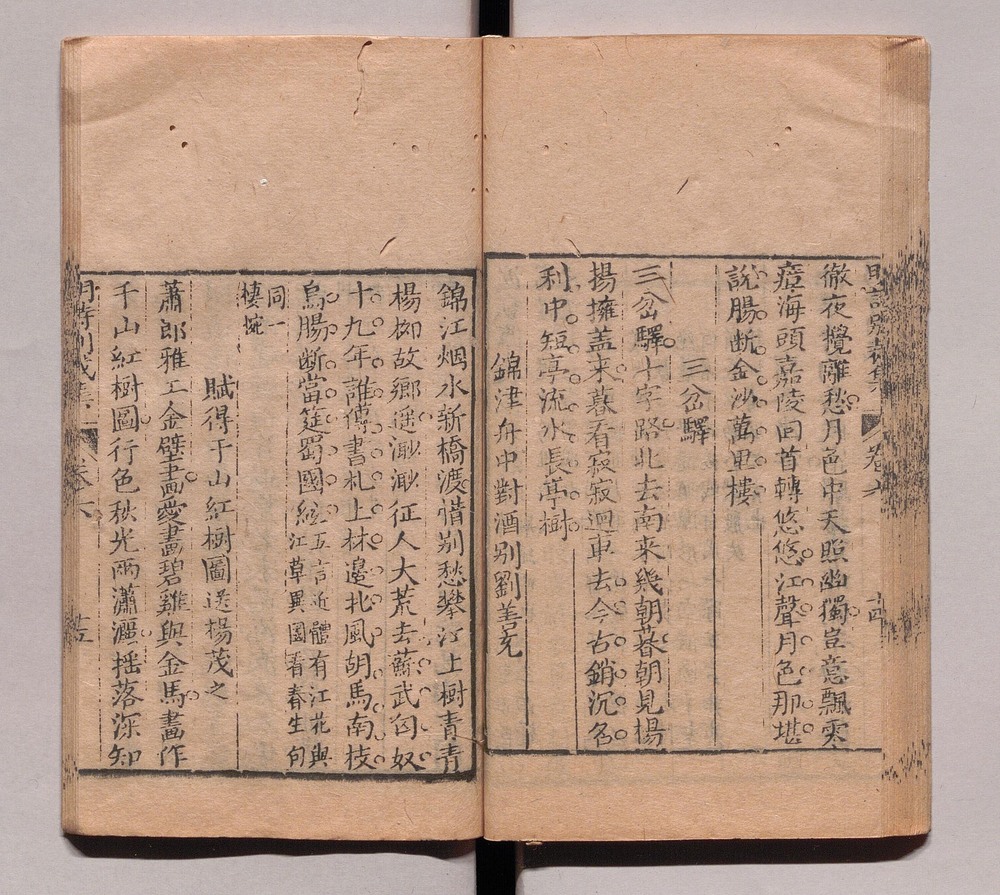 明詩別裁集
卷六
十四
徹夜攪離愁月色中天照幽獨豈意飄零
瘴海頭嘉陵回首轉悠悠江聲月色那堪
說腸斷金沙萬里樓
三岔驛
三岔驛十字路北去南来幾朝暮朝見楊
揚擁盖来暮看寂寂迴車去今古銷沉名
利中短亭流水長亭樹
錦津舟中對酒别劉善充
錦江烟水新橋渡惜别愁攀江上樹青青
楊栁故鄉遥渺渺征人大荒去蘇武匈奴
十九年誰傳書札上林邊北風胡馬南枝
鳥腸斷當筵蜀國絃
五言近體有江花與
江草異國看春生句
同一
悽惋
賦得千山紅樹圖送楊茂之
蕭郎雅工金壁畫愛畫碧雞與金馬畫作
千山紅樹圖行色秋光兩瀟灑摇落深知
明詩別裁集
卷六